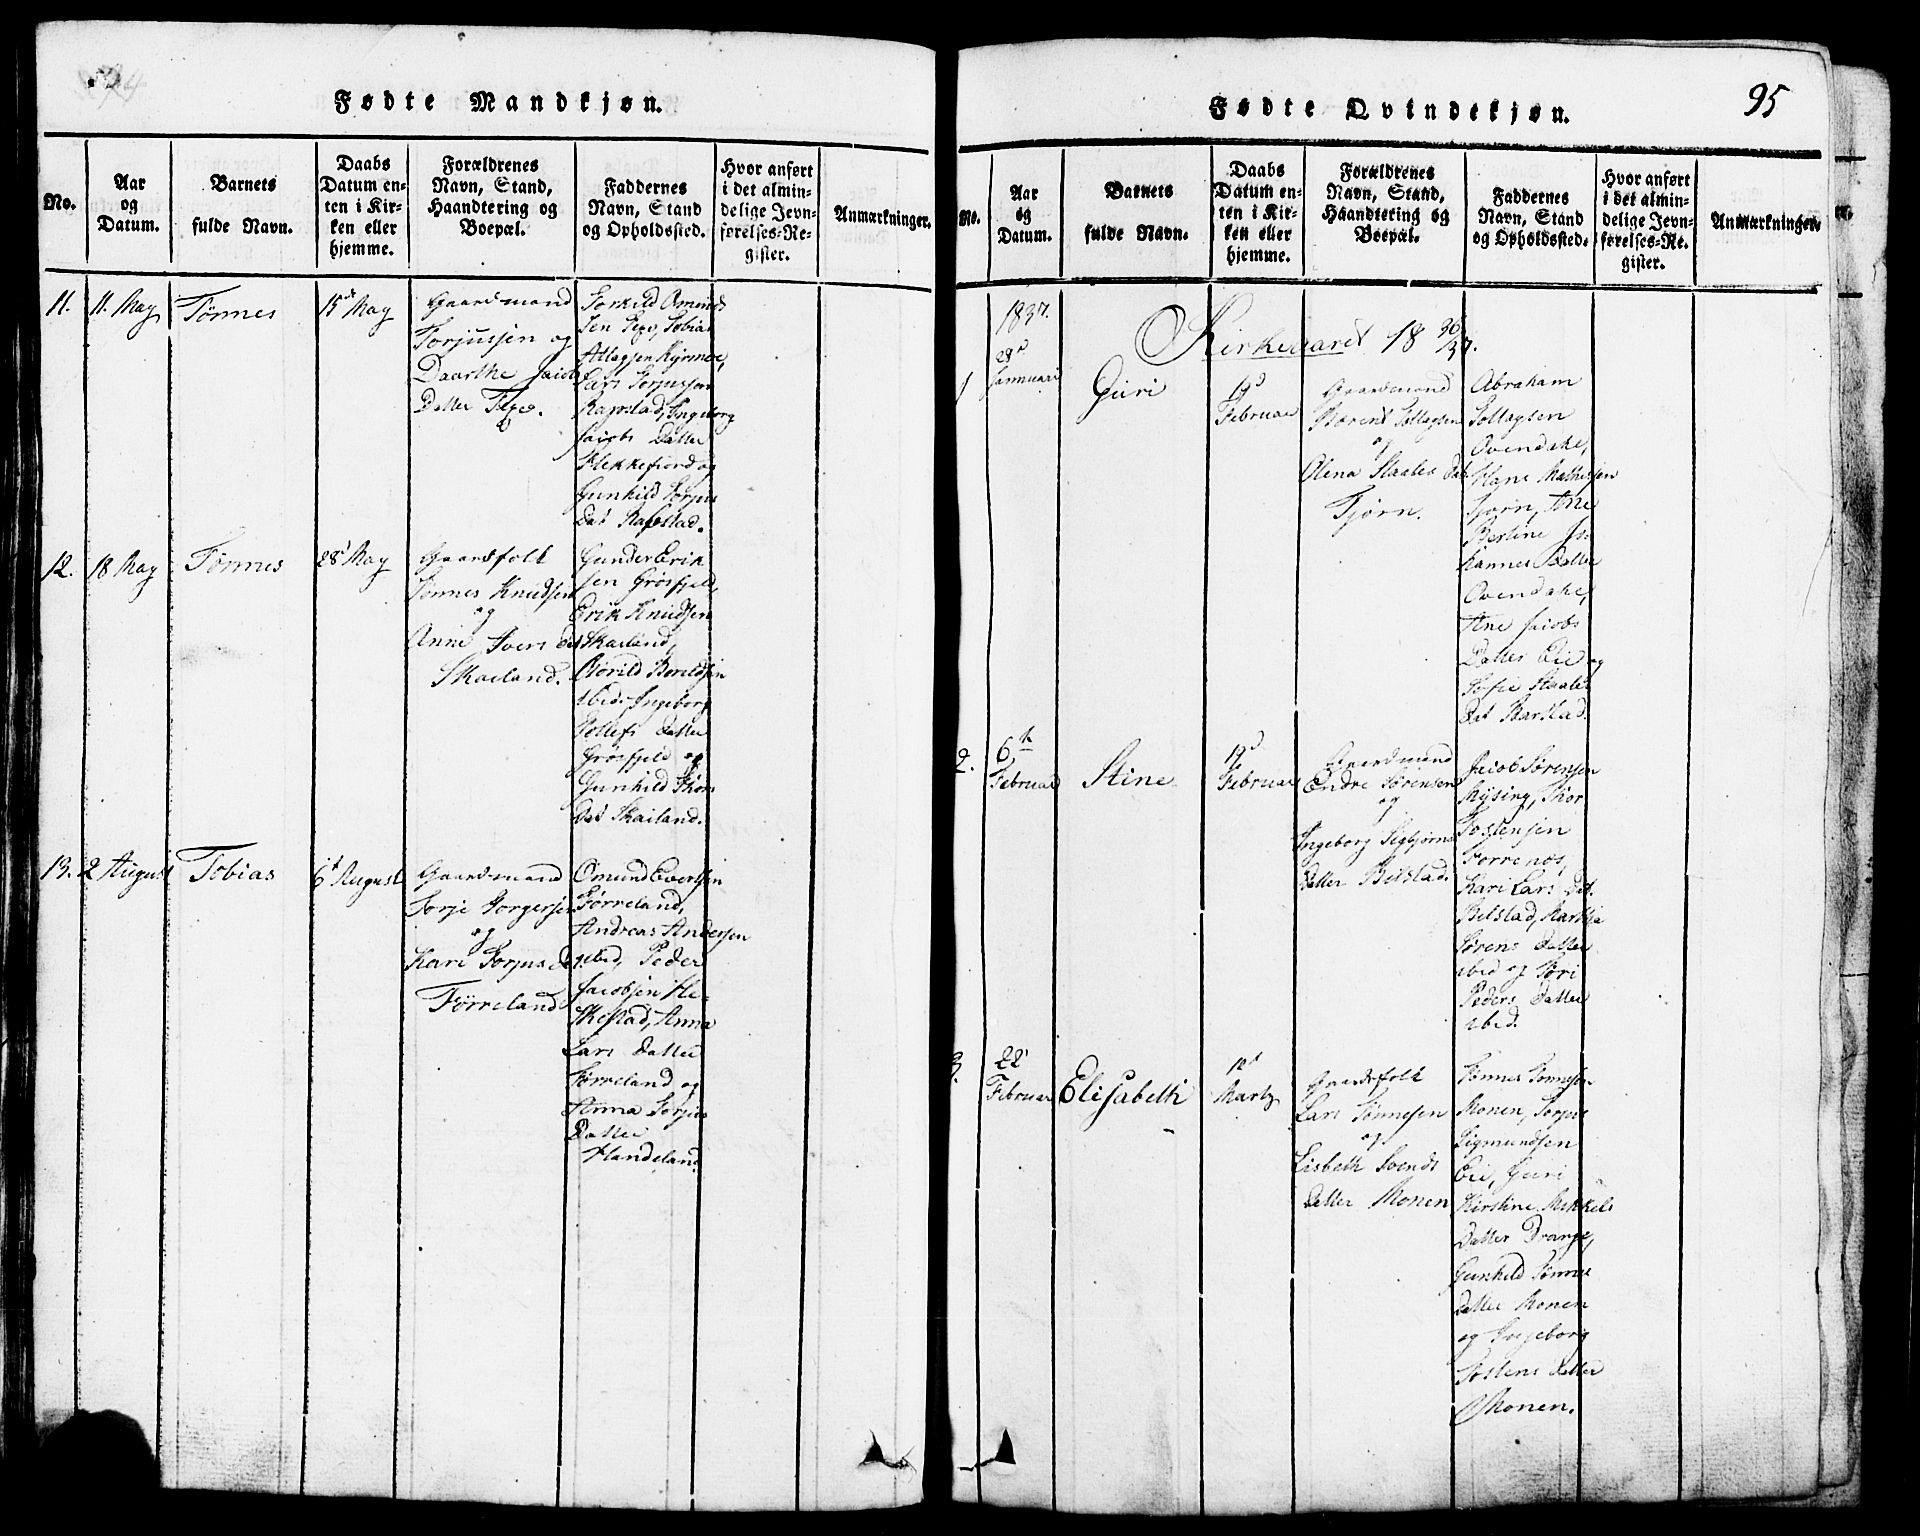 Fødte Mandkjøn.
No.
Aar
og
Datum.
Barnets
fulde Navn.
Daabs
Datum en-
ten i Kir-
ken eller
hjemme.
Forældrenes
Navn, Stand,
Haandtering og
Boepæl.
Faddernes
Navn, Stand
og Opholdssted.
Hvor anført
i det almin-
delige Jevn-
førelses-Re-
gister.
Anmærkninger.
11.
11. May
Tønnes
15de May
Gaardmand
Torjussen og
Daarthe Jacobs
Datter
Torkild Omund
sen
Tobias
Atlagsen
Lars Torjussen
Rapstad, Ingeborg
Jacobs Datter
Flekkefiord og
Gunhild Torjus
Dat Rapstad.
12.
18 May
Tønnes
28d May
Gaardfolk
Tønnes Knudsen
og
Anne Ivers dat
Skaeland.
Gunder Erik
sen Grøsfjeld,
Erik Knudsen
Skaeland,
ibid. Ingeborg
Tollefs Datter
Grøsfjeld og
Gunhild
Dat Skailand.
13.
2 August
Tobias
6d August
Gaardmand
Torje
og
Kari Torjusd
Førreland
Omund Evertsen
Førreland,
Andreas Andersen
ibid, Peder
Jacobsen He-
skestad, Anna
Lars Datter
Førreland og
Anna Torjus
Datter
Handeland
Fødte Qvindekjøn.
95
No.
Aar
og
Datum.
Barnets
fulde Navn.
Daabs
Datum en-
ten i Kir-
ken eller
hjemme.
Forældrenes
Navn, Stand,
Haandtering og
Boepæl.
Faddernes
Navn, Stand
og Opholdssted.
Hvor anført
i det almin-
delige Jevn-
førelses-Re-
gister.
Anmærkninger.
1837.
Kirkeaaret 18 36/37.
1
28d
Januari
Guri
19d
Februar
Gaardmand
Berent Sollagsen
og
Olena Staales Dat
Tjørn.
Abraham
Sollagsen
Ovendahe,
Hans Mathissen
Tjørn, Ane
Bertine Jo-
hannes Datter
Ovendahe,
Ane Jacobs
Datter Eie og
Sofie Staales
Dat Barstad.
2.
6th
Februar
Stine
19d
Februar
Gaardmand
Endre Sørensen
og
Ingeborg Sigbjørns
datter Betstad.
Jacob Sørensen
Mysing, Thor
Tostensen
Torrenes,
Kari Lars Dat.
Betstad, Martha
Sørens datter
ibid og Tori
Peders Datter
ibid.
3.
22
Februar
Elisabeth
12d
Marty
Gaardfolk
Lars Tønnesen
og
Lisbeth Svends
datter Monen
Tønnes Tønnesen
Monen, Torjus
Sigmundsen
Eie, Guri
Kirstine Mikkels
Datter Drange,
Gunhild Tønnes
datter Monen
og Ingeborg
Tostens datter
Monen.